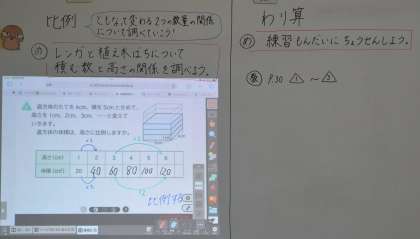 比例
ともなって変わる2つの数量の関係
について調べていこう!
め レンガと植木はちについて
積む数と高さの関係を調べよう。
直方体のたてを4cm、横を5cmと決めて、
高さを1cm、2cm、3cm、…と変えて
いきます。
直方体の体積は、高さに比例しますか。
高さ(cm) 1 2 3 4 5 6
体積(cm³) 20 40 60 80 100 120
×2
×2
比例する
わり算
め 練習もんだいに ちょうせんしよう。
P.30 1 〜